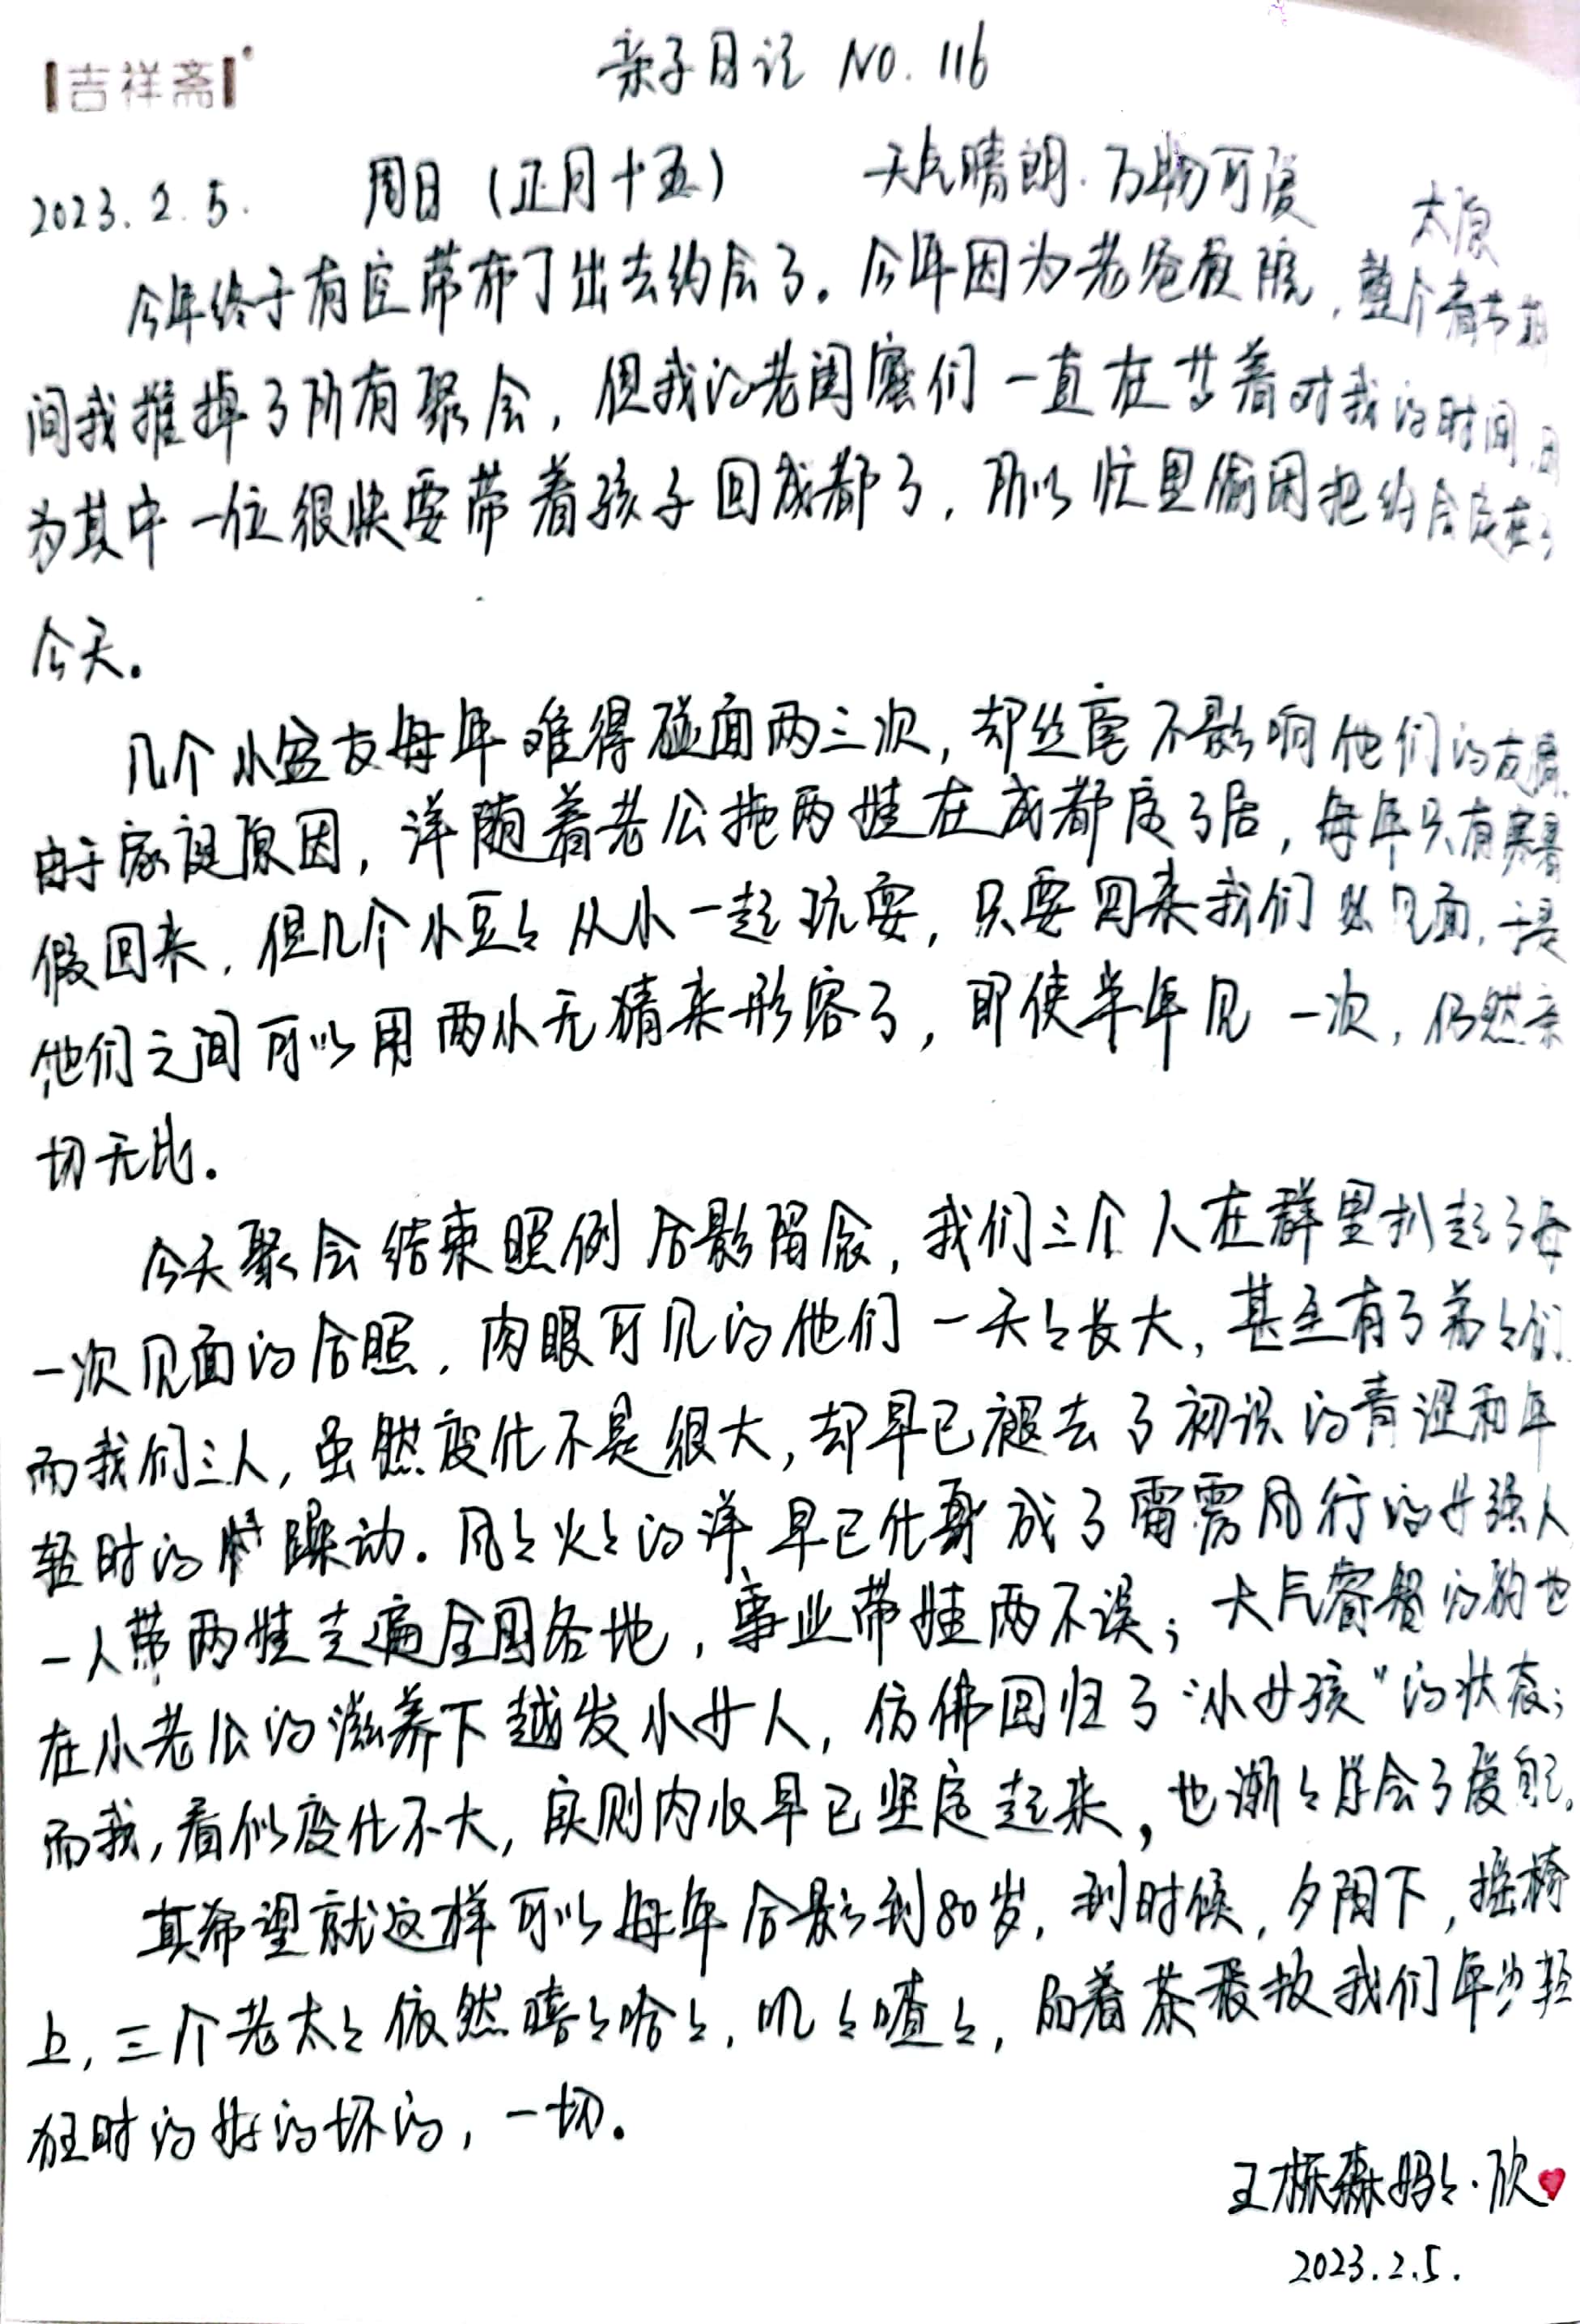 吉祥斋
亲子日记 NO. 116
2023. 2. 5. 周日（正月十五） 天气晴朗. 万物可爱 太原
今年终于有空带布丁出去约会了。今年因为老爸住院，整个春节期
间我推掉了所有聚会，但我的老闺蜜们一直在等着对我的时间，因
为其中一位很快要带着孩子回成都了，所以忙里偷闲把约会定在了
今天。
几个小盆友每年难得碰面两三次，却丝毫不影响他们的友情。
由于家庭原因，洋随着老公拖两娃在成都定了居，每年只有寒暑
假回来，但几个小豆々从小一起玩耍，只要回来我们必见面，于是
他们之间可以用两小无猜来形容了，即使半年见一次，仍然亲
切无比。
今天聚会结束照例合影留念，我们三个人在群里扒起了每
一次见面的合照，肉眼可见的他们一天々长大，甚至有了弟々们
而我们三人，虽然变化不是很大，却早已褪去了初识的青涩和年
轻时的躁动。风々火々的洋早已化身成了雷雳风行的女强人
一人带两娃走遍全国各地，事业带娃两不误；大气睿智的韵也
在小老公的滋养下越发小女人，仿佛回归了“小女孩”的状态；
而我，看似变化不大，实则内心早已坚定起来，也渐々学会了爱自己。
真希望就这样可以每年合影到80岁，到时候，夕阳下，摇椅
上，三个老太々依然嘻々哈々，叽々喳々，就着茶聊我们年少轻
狂时的好的坏的，一切。
王栎森妈々·欣
2023.2.5.